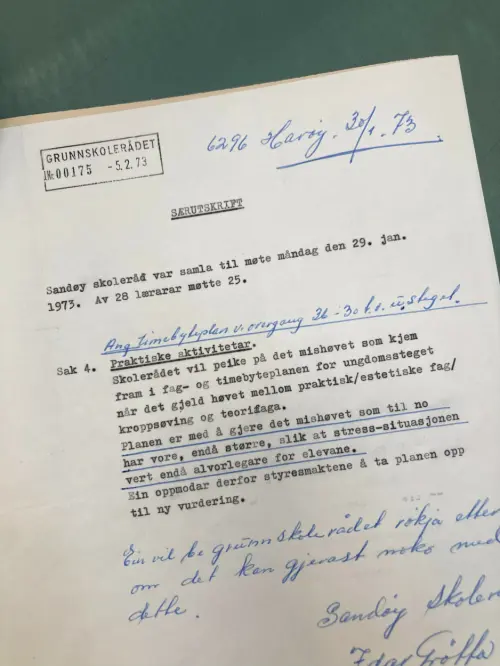 GRUNNSKOLERÅDET
Nr 00175 - 5.2.73
6296 Harøy. 30/1. 73.
SÆRUTSKRIFT
Sandøy skoleråd var samla til møte måndag den 29. jan.
1973. Av 28 lærarar møtte 25.
Ang. timebyteplan v. overgang 36 - 30 t. i u.steget.
Sak 4. Praktiske aktivitetar.
Skolerådet vil peike på det mishøvet som kjem
fram i fag- og timebyteplanen for ungdomssteget
når det gjeld høvet mellom praktisk/estetiske fag/
kroppsøving og teorifaga.
Planen er med å gjere det mishøvet som til no
har vore, endå større, slik at stress-situasjonen
vert endå alvorlegare for elevane.
Ein oppmodar derfor styresmaktene å ta planen opp
til ny vurdering.
Ein vil be grunnskolerådet røkja etter
om det kan gjerast noko med
dette.
Sandøy Skoler